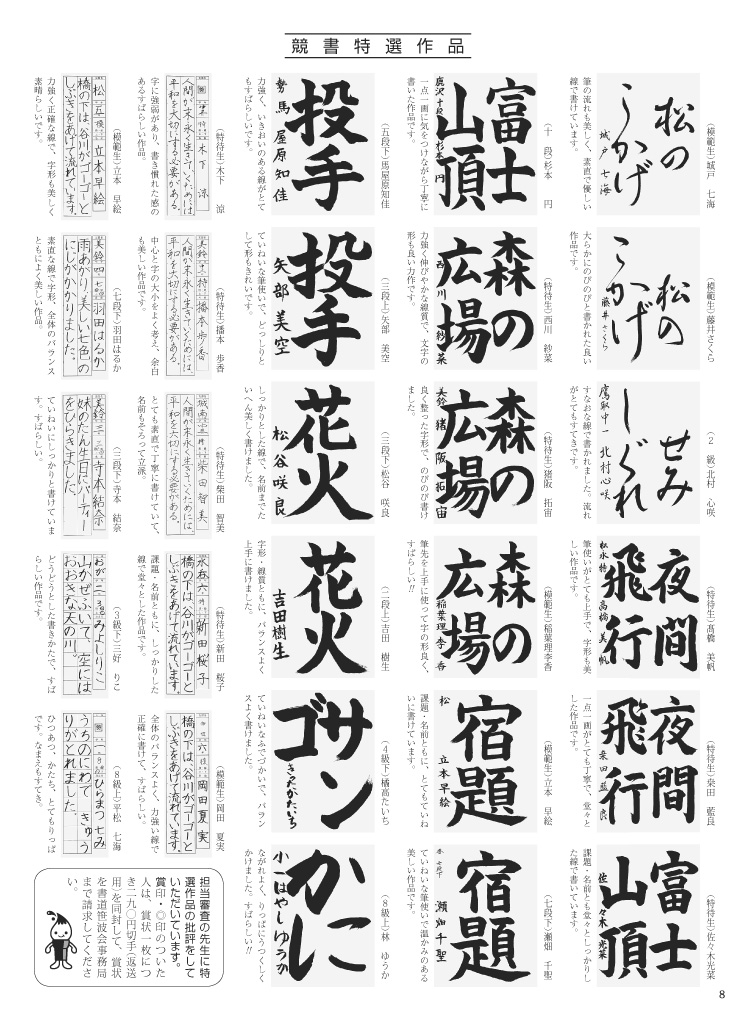 競書特選作品
松の
こかげ
城戸 七海
(模範生)城戸 七海
筆の流れも美しく、素直で優しい
線で書けています。
松の
こかげ
藤井さくら
(模範生)藤井さくら
大らかにのびのびと書かれた良い
作品です。
せみ
しぐれ
鷹取中一 北村心咲
(2 級)北村 心咲
すなおな線で書かれました。流れ
がとてもすてきです。
夜間
飛行
松永特 高橋美帆
(特待生)髙橋 美帆
筆使いがとても上手で、字形も美
しい作品です。
夜間
飛行
柴田藍良
(特待生)柴田 藍良
一点一画がとても丁寧で、堂々と
した作品です。
富士
山頂
佐々木光菜
(特待生)佐々木光菜
課題・名前とも堂々としっかりし
た線で書いています。
富士
山頂
鹿沢十段 杉本円
(十 段)杉本 円
一点一画に気をつけながら丁寧に
書いた作品です。
森の
広場
西川紗菜
(特待生)西川 紗菜
力強く伸びやかな線質で、文字の
形も良い力作です。
森の
広場
美鈴 猪阪拓宙
(特待生)猪阪 拓宙
良く整った字形で、のびのび書け
ました。
森の
広場
稲葉理李香
(模範生)稲葉理李香
筆先を上手に使って字の形良く、
すばらしい!!
宿題
松 立本早絵
(模範生)立本 早絵
課題・名前ともに、とてもていね
いに書けています。
宿題
本 七段下 瀬畑千聖
(七段下)瀬畑 千聖
ていねいな筆使いで温かみのある
美しい作品です。
投手
勢 馬屋原知佳
(五段下)馬屋原知佳
力強く、いきおいのある線がとて
もすばらしいです。
投手
矢部美空
(三段上)矢部 美空
ていねいな筆使いで、どっしりと
して形もきれいです。
花火
松谷咲良
(三段下)松谷 咲良
しっかりとした線で、名前までた
いへん美しく書けました。
花火
吉田樹生
(二段上)吉田 樹生
字形・線質ともに、バランスよく
上手に書けました。
サン
ゴ
きったかたいち
(4級下)橘高たいち
ていねいなふでづかいで、バラン
スよく書けました。
かに
小一 はやしゆうか
(8級上)林 ゆうか
ながれよく、りっぱにうつくしく
かけました。すばらしい!!
木下 涼
人間が末永く生きていくためには
平和を大切にする必要がある。
(特待生)木下 涼
字に強弱があり、書き慣れた感の
あるすばらしい作品。
美鈴 中一 特 播本歩香
人間が末永く生きていくためには、
平和を大切にする必要がある。
(特待生)播本 歩香
中心と字の大小をよく考え、余白
も美しい作品です。
城南 柴田智美
人間が末永く生きていくためには、
平和を大切にする必要がある。
(特待生)柴田 智美
とても素直で丁寧に書けていて、
名前もそろって立派。
水呑 六 新田桜子
橋の下は、谷川がゴーゴーと
しぶきをあげて流れています。
(特待生)新田 桜子
課題・名前ともに、しっかりした
線で堂々とした作品です。
六 岡田夏実
橋の下は、谷川がゴーゴーと
しぶきをあげて流れています。
(模範生)岡田 夏実
全体のバランスよく、力強い線で
正確に書けて、すばらしい。
松 五 模 立本早絵
橋の下は、谷川がゴーゴーと
しぶきをあげて流れています。
(模範生)立本 早絵
力強く正確な線で、字形も美しく
素晴らしいです。
美鈴 四 七段 羽田はるか
雨あがり、美しい七色の
にじがかかりました。
(七段下)羽田はるか
素直な線で字形、全体のバランス
ともによく美しい作品。
美鈴 三 寺本結奈
妹のたん生日にパーティー
をひらきました。
(三段下)寺本 結奈
ていねいにしっかりと書けていま
す。すばらしい。
おが 二 みよしりこ
山かぜふいて、空には
おおきな天の川。
(3級下)三好 りこ
どうどうとした書きかたで、すば
らしい作品です。
一 ひらまつ七み
うちのにわで きゅう
りがとれました。
(8級上)平松 七海
ひつあつ、かたち、とてもりっぱ
です。なまえもすてき。
担当審査の先生に特
選作品の批評をして
いただいています。
賞印・◎印のついた
人は、賞状一枚につ
き二九〇円切手(返送
用)を同封して、賞状
を書道笹波会事務局
まで請求してくださ
い。
8